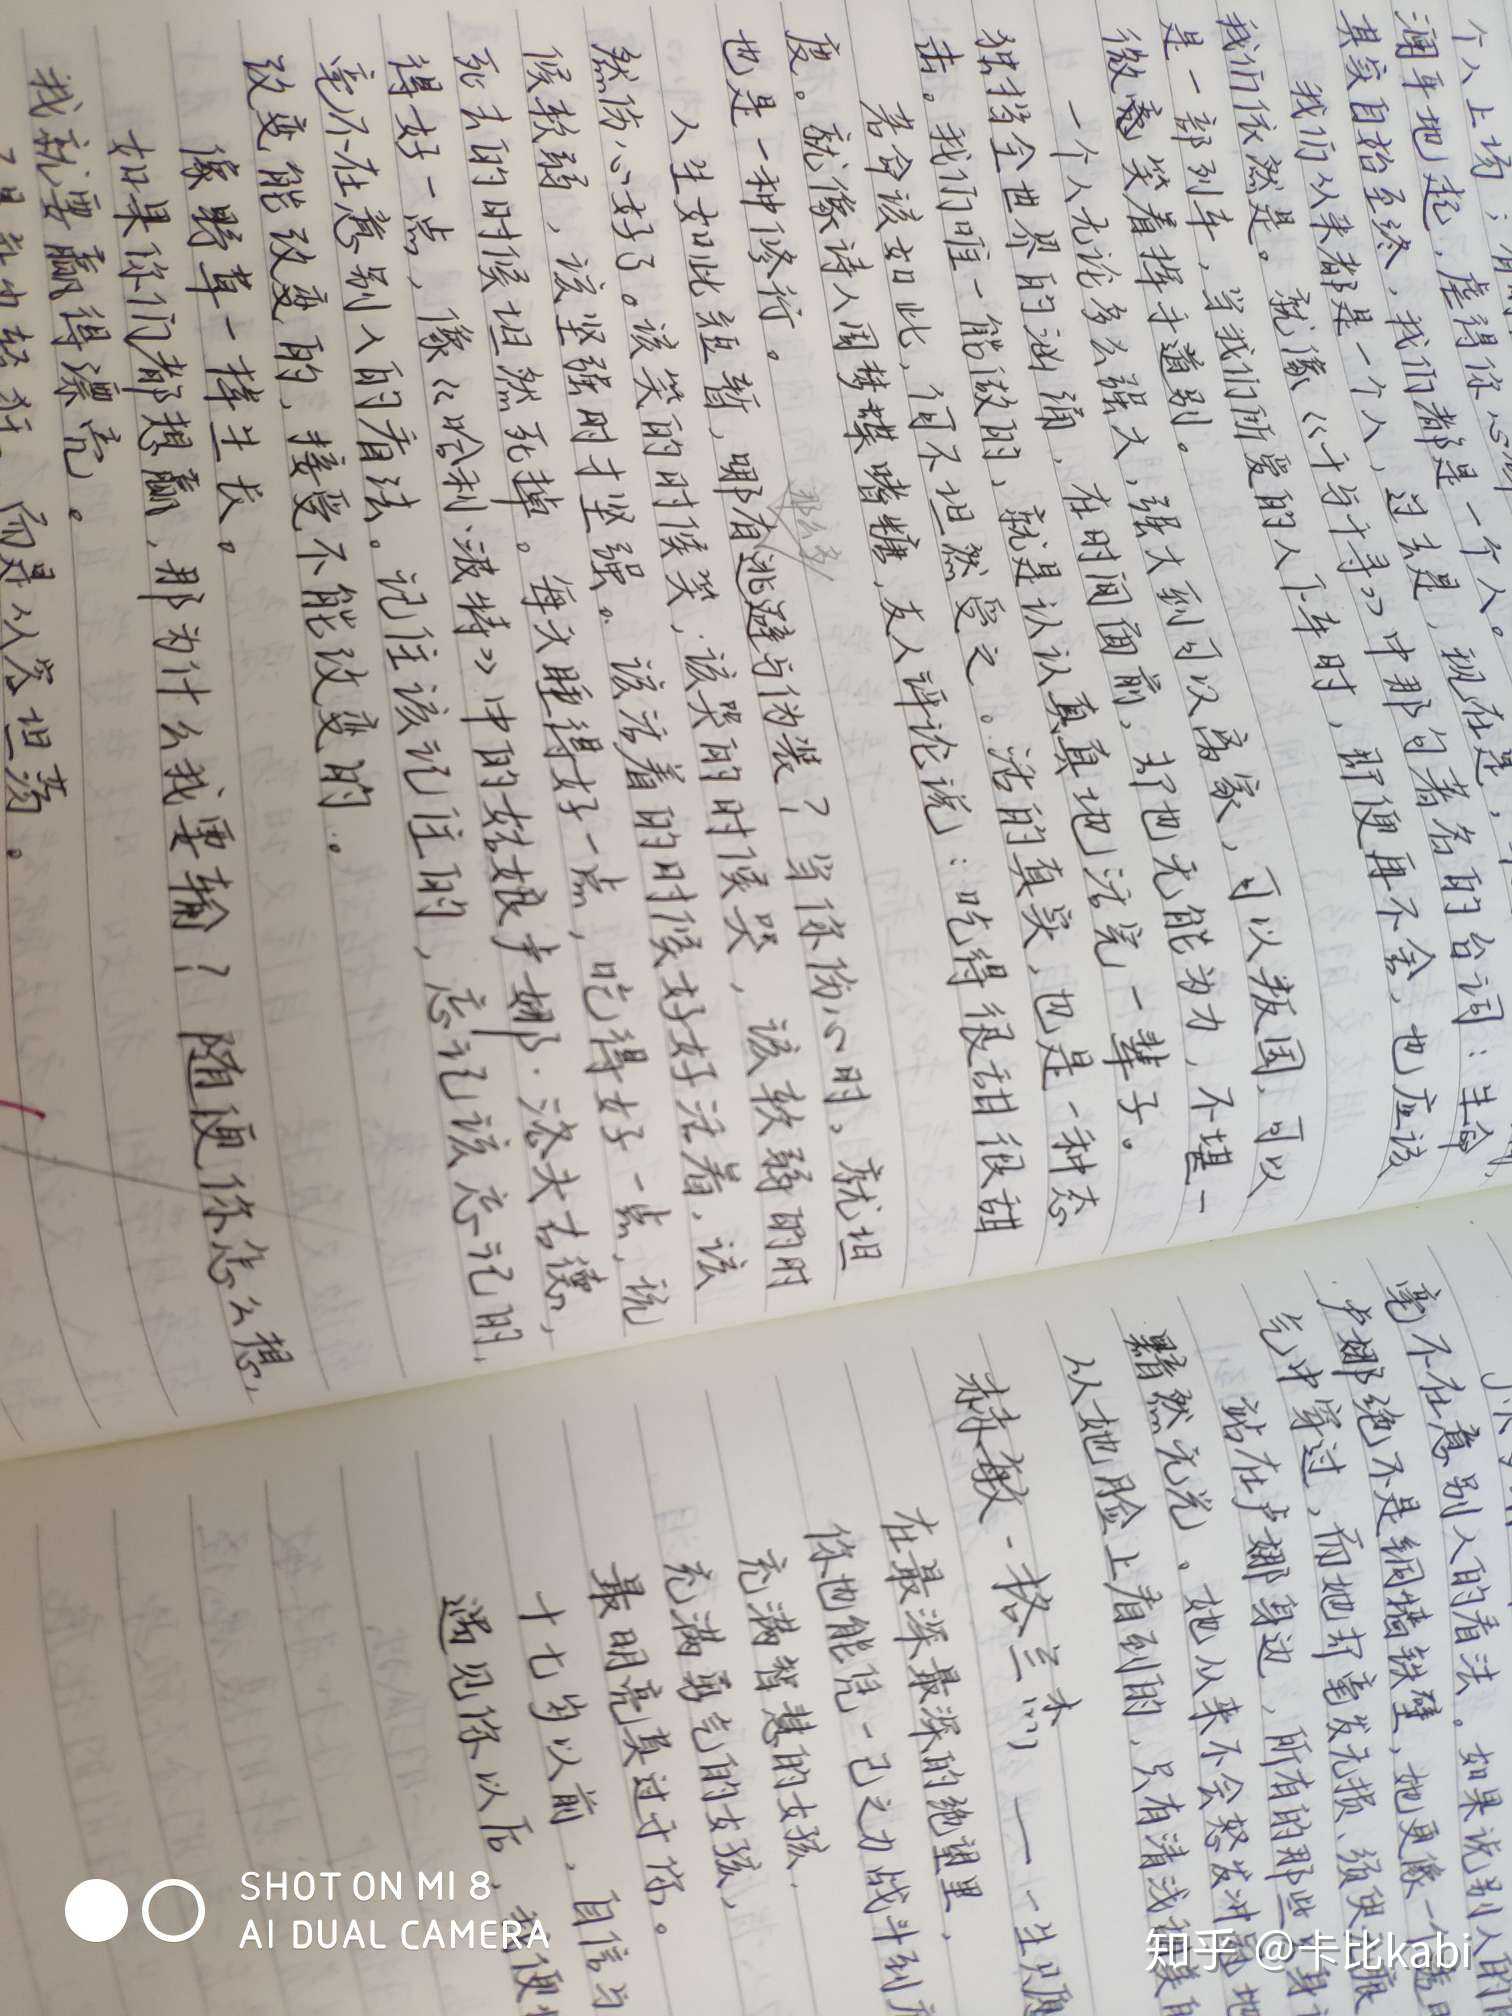 个人上场；
澜平地起，虐得你心
其实自始至终，我们都是一个人。
我们从来都是一个人，过去是，现在是，
我们依然是。就像《千与千寻》中那句著名的台词：生命
是一部列车，当我们所爱的人下车时，即便再不舍，也应该
微笑着挥手道别。
一个人无论多么强大，强大到可以离家，可以叛国，可以
独挡全世界的汹涌，在时间面前，却也无能为力，不堪一
击。我们唯一能做的，就是认认真真地活完一辈子。
若命该如此，何不坦然受之。活的真实，也是一种态
度。就像诗人周梦蝶嗜糖，友人评论说：吃得很甜很甜
也是一种修行。
人生如此短暂，哪有那么多逃避与伪装？当你伤心时，就坦
然伤心好了。该笑的时候笑，该哭的时候哭，该软弱的时
候软弱，该坚强时才坚强。该活着的时候好好活着，该
死去的时候坦然死掉。每天睡得好一点，吃得好一点，玩
得好一点，像《哈利·波特》中的姑娘卢娜·洛夫古德，
毫不在意别人的看法。记住该记住的，忘记该忘记的，
改变能改变的，接受不能改变的。
像野草一样生长。
如果你们都想赢，那为什么我要输？随便你怎么想，
我就要赢得漂亮。
而是从容坦荡。
毫不在意别人的看法。如果说别人的
卢娜绝不是铜墙铁壁，她更像一
气中穿过，而她却毫发无损、须臾
站在卢娜身边，所有的那些
黯然无光。她从来不会怒发冲冠地
从她脸上看到的，只有清浅
赫敏·格兰杰 —— 一生只愿
在最深最深的绝望里，
你也能凭一己之力战斗到
充满智慧的女孩，
充满勇气的女孩，
最明亮莫过于你。
十七岁以前，自信与
遇见你以后，我便
SHOT ON MI 8
AI DUAL CAMERA
知乎 @卡比kabi